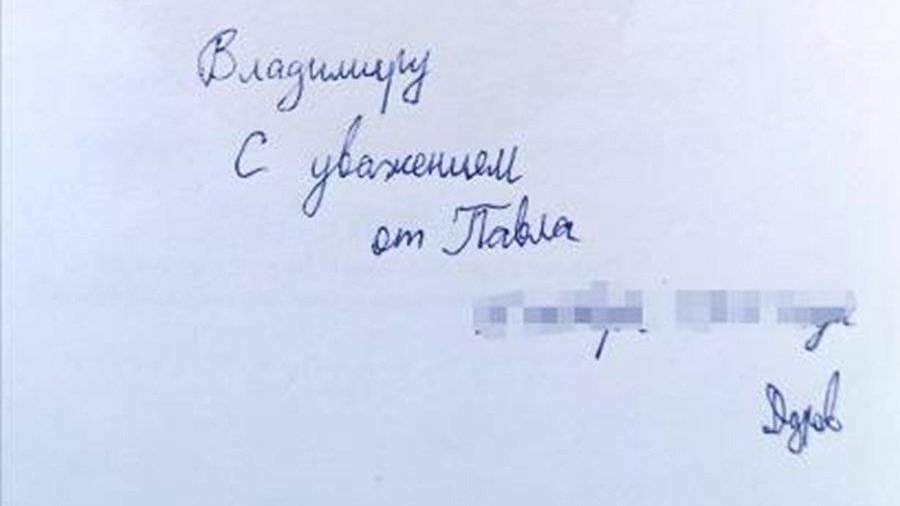 Владимиру
С уважением
от Павла
Дуров